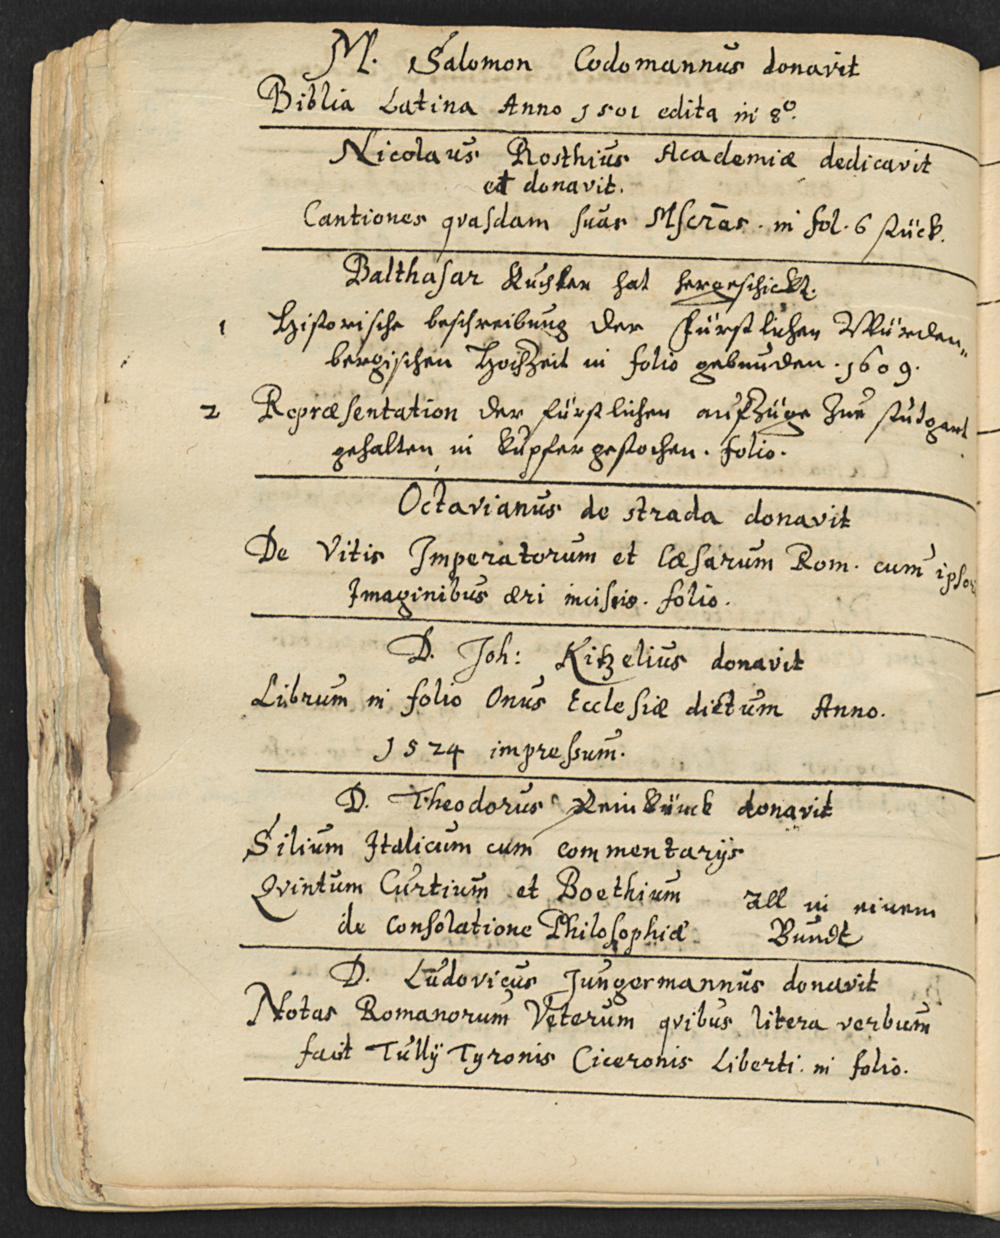 M. Salomon Codomannus donavit
Biblia Latina Anno 1501 edita in 8o.
Nicolaus Rosthius Academiæ dedicavit
et donavit.
Cantiones qvasdam suas Mscras. in fol. 6 stück.
Balthasar Kuchler hat hergeschickt.
1 Historische beschreibung der Fürstlichen Würden„
bergischen Hochzeit in folio gebunden. 1609.
2 Repræsentation der fürstlichen auffzüge zue stutgart
gehalten in kupfer gestochen. folio.
Octavianus de strada donavit
De Vitis Imperatorum et Cæsarum Rom. cum
Imaginibus æri incisis. folio.
D. Joh: Kitzelius donavit
Librum in folio Onus Ecclesiæ dictum Anno.
1524 impressum.
D. Theodorus Reinkünck donavit
Silium Italicum cum commentarijs
Qvintum Curtium et Boethium all in einem
de Consolatione Philosophiæ Bundt
D. Ludovicus Jungermannus donavit
Notas Romanorum Veterum qvibus litera verbum
facit Tullij Tyronis Ciceronis Liberti. in folio.